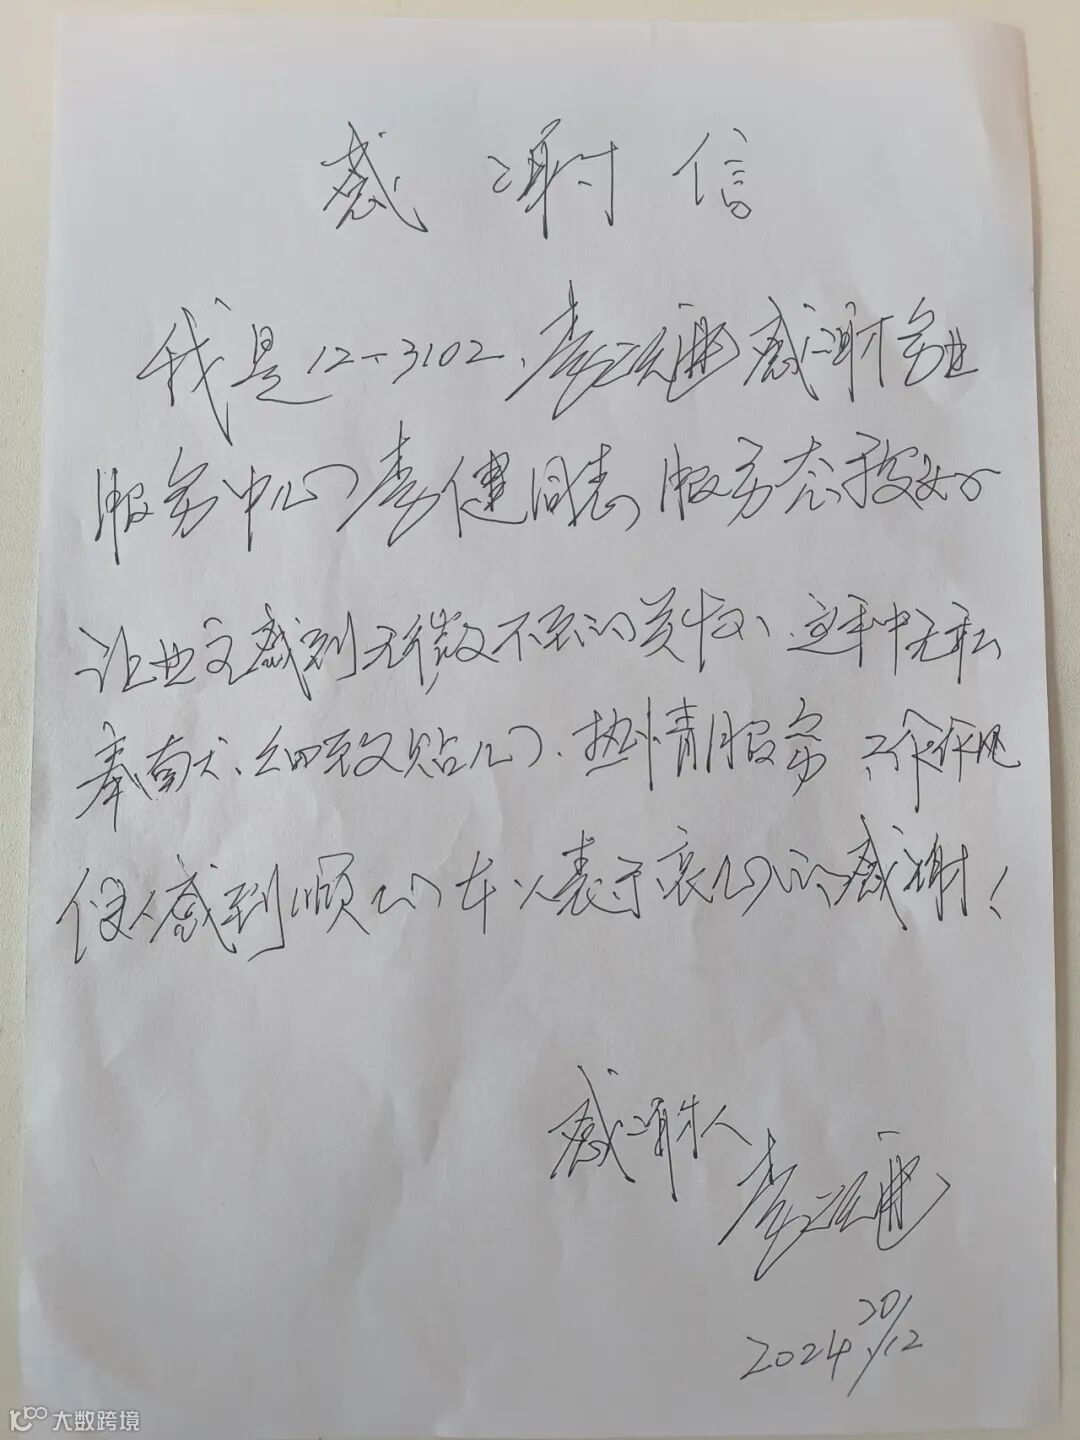 感谢信
我是12-3102,李感谢物业
服务中心李健同志服务态度好
让业主感到无微不至的关怀、这种无私
奉献、细致贴心、热情服务 工作作风
使人感到顺心 本以表于衷心的感谢!
感谢人
李
2024 20/12
大数跨境